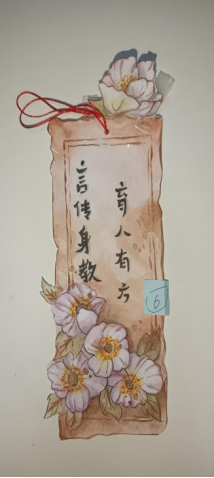 育人有方
言传身教
⑥